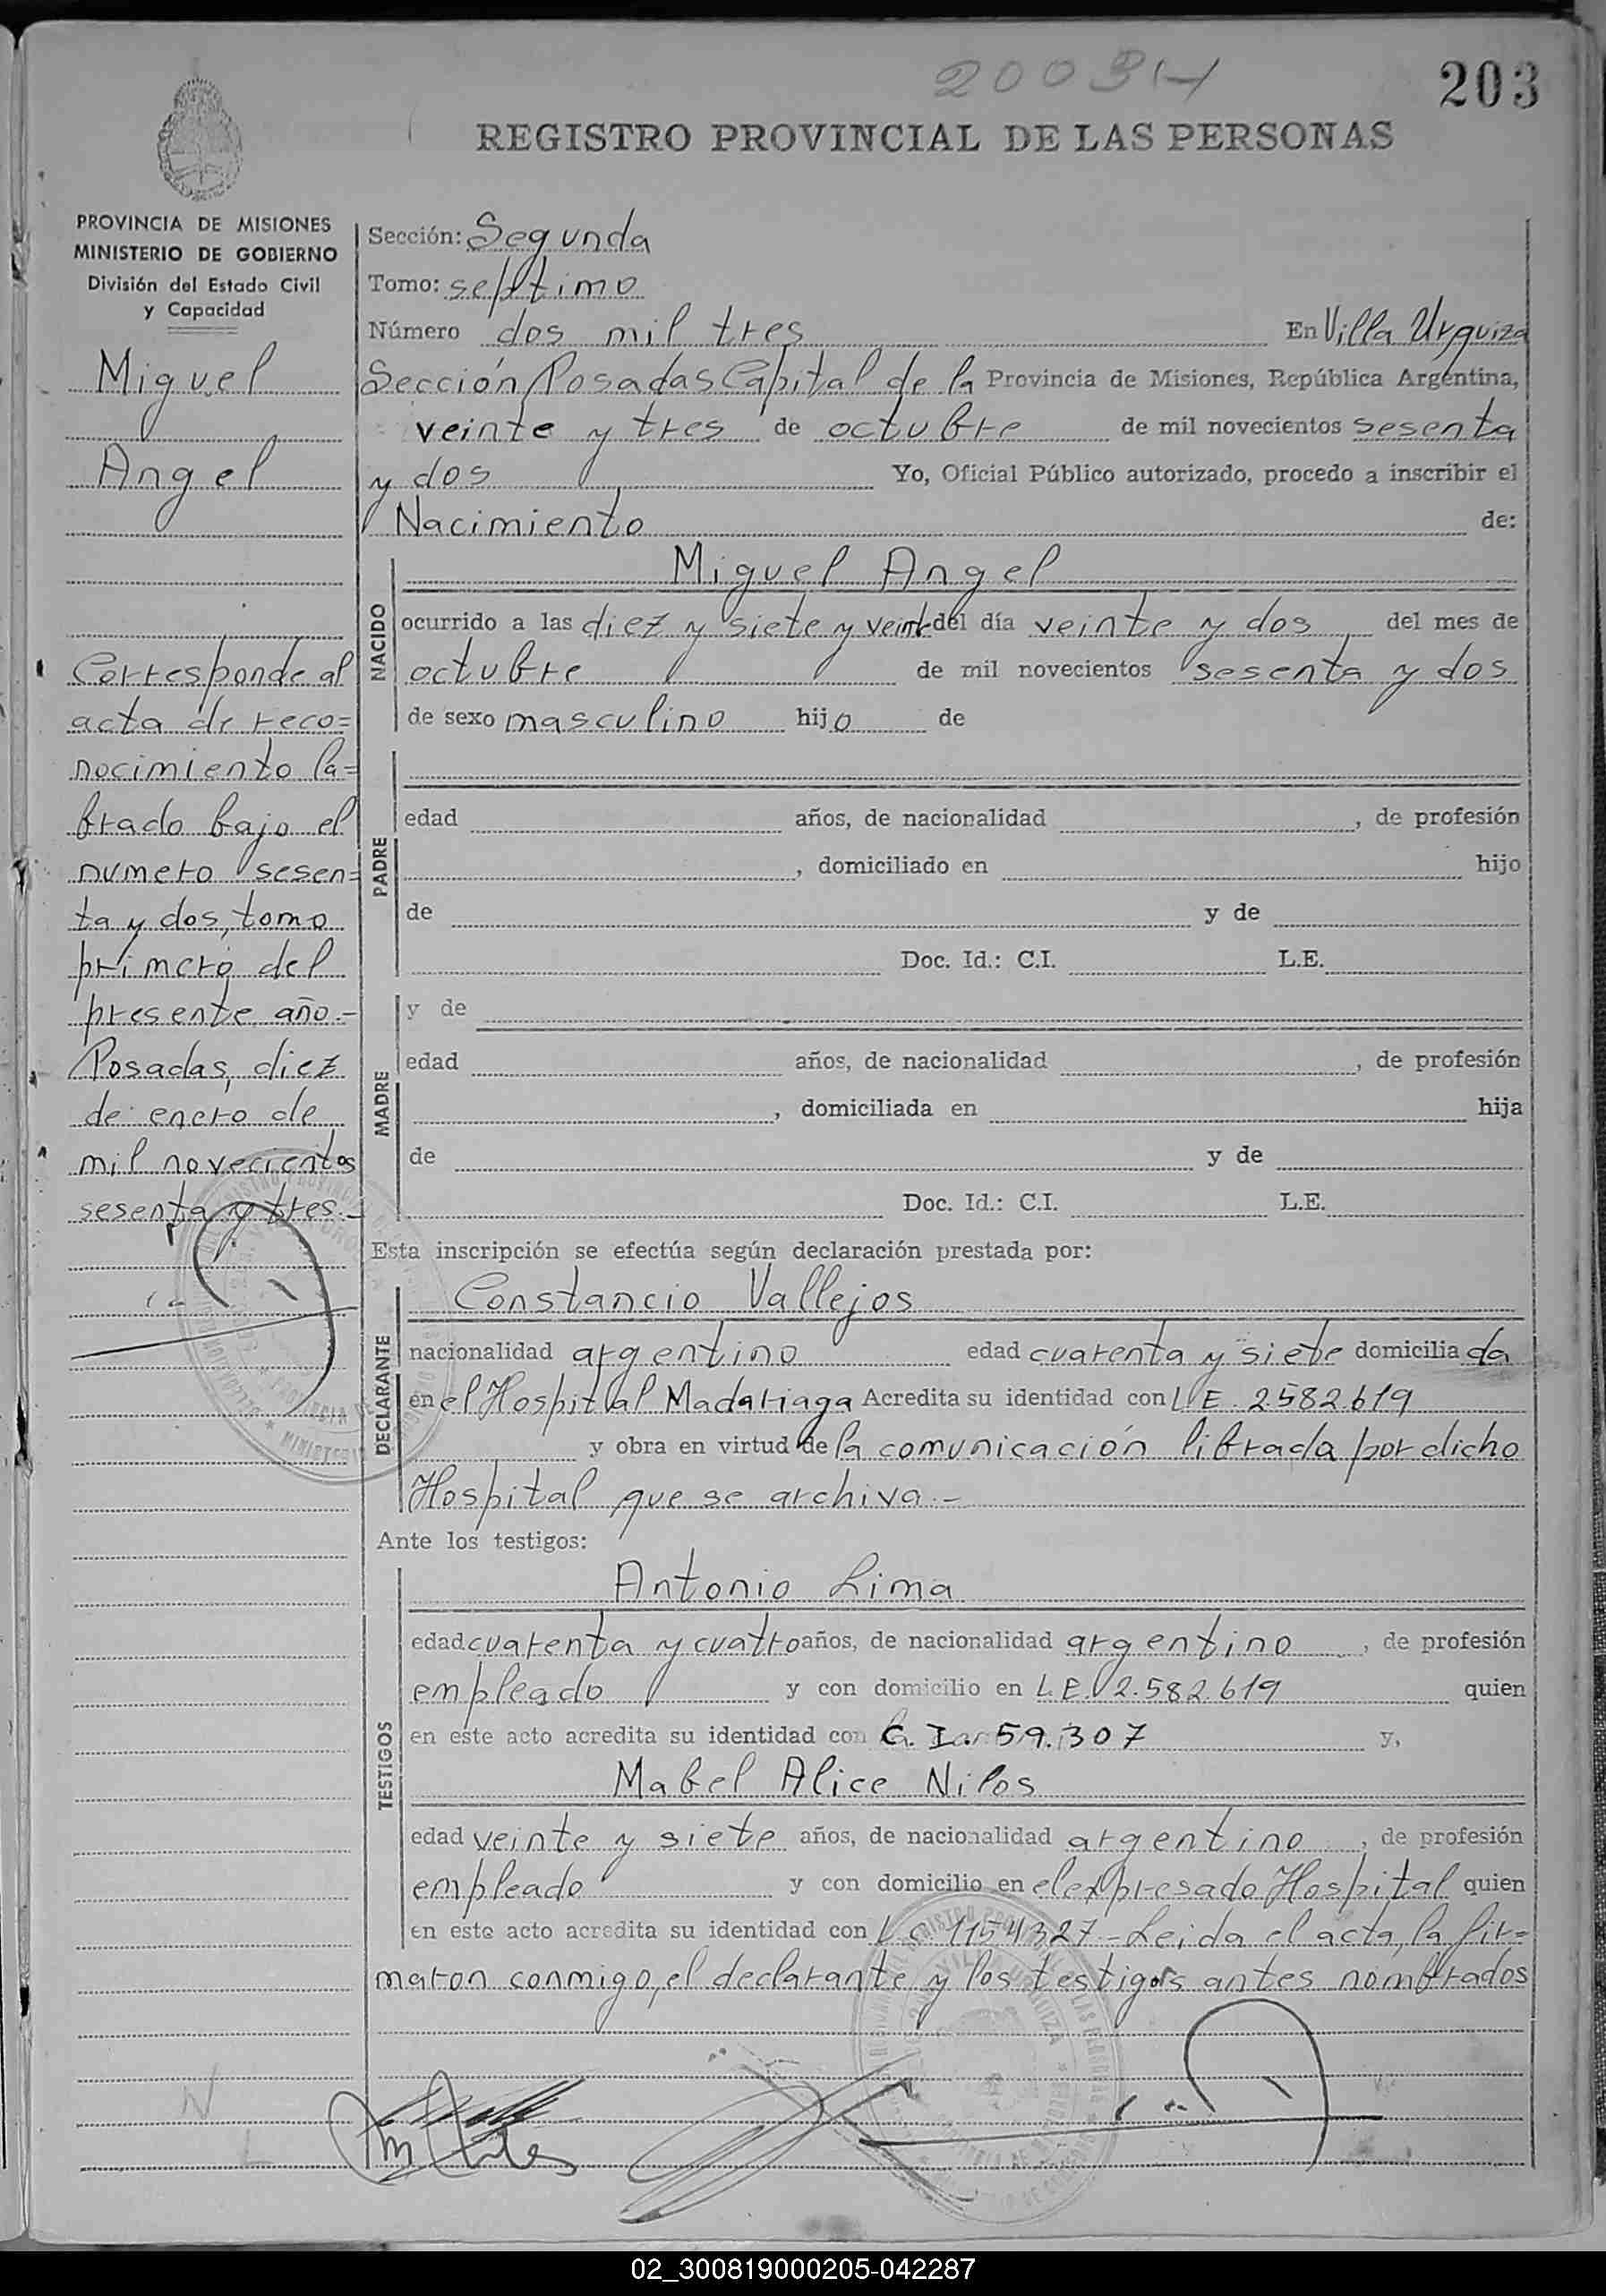 2003
203
REGISTRO PROVINCIAL DE LAS PERSONAS
PROVINCIA DE MISIONES
MINISTERIO DE GOBIERNO
División del Estado Civil
y Capacidad
Miguel
Angel
Corresponde al
acta de reco=
nocimiento la=
brado bajo el
numero sesen=
ta y dos, tomo
primero del
presente año.-
Posadas, diez
de enero de
mil novecientos
sesenta y tres.-
Sección: Segunda
Tomo: septimo
Número dos mil tres En Villa Urquiza
Sección Posadas Capital de la Provincia de Misiones, República Argentina,
veinte y tres de octubre de mil novecientos sesenta
y dos Yo, Oficial Público autorizado, procedo a inscribir el
Nacimiento de:
NACIDO
Miguel Angel
ocurrido a las diez y siete y veint del día veinte y dos del mes de
octubre de mil novecientos sesenta y dos
de sexo masculino hijo de
PADRE
edad años, de nacionalidad , de profesión
, domiciliado en hijo
de y de
Doc. Id.: C.I. L.E.
MADRE
y de
edad años, de nacionalidad , de profesión
, domiciliada en hija
de y de
Doc. Id.: C.I. L.E.
Esta inscripción se efectúa según declaración prestada por:
DECLARANTE
Constancio Vallejos
nacionalidad argentino edad cuarenta y siete domicilia da
en el Hospital Madariaga Acredita su identidad con L E. 2.582.619
y obra en virtud de la comunicación librada por dicho
Hospital que se archiva.-
Ante los testigos:
TESTIGOS
Antonio Lima
edad cuarenta y cuatro años, de nacionalidad argentino , de profesión
empleado y con domicilio en L.E. 2.582.619 quien
en este acto acredita su identidad con C. I. 59.307 y,
Mabel Alice Nilos
edad veinte y siete años, de nacionalidad argentino , de profesión
empleado y con domicilio en el expresado Hospital quien
en este acto acredita su identidad con L C 1154327 - Leida el acta, la fir=
maron conmigo, el declarante y los testigos antes nombrados
02_300819000205-042287